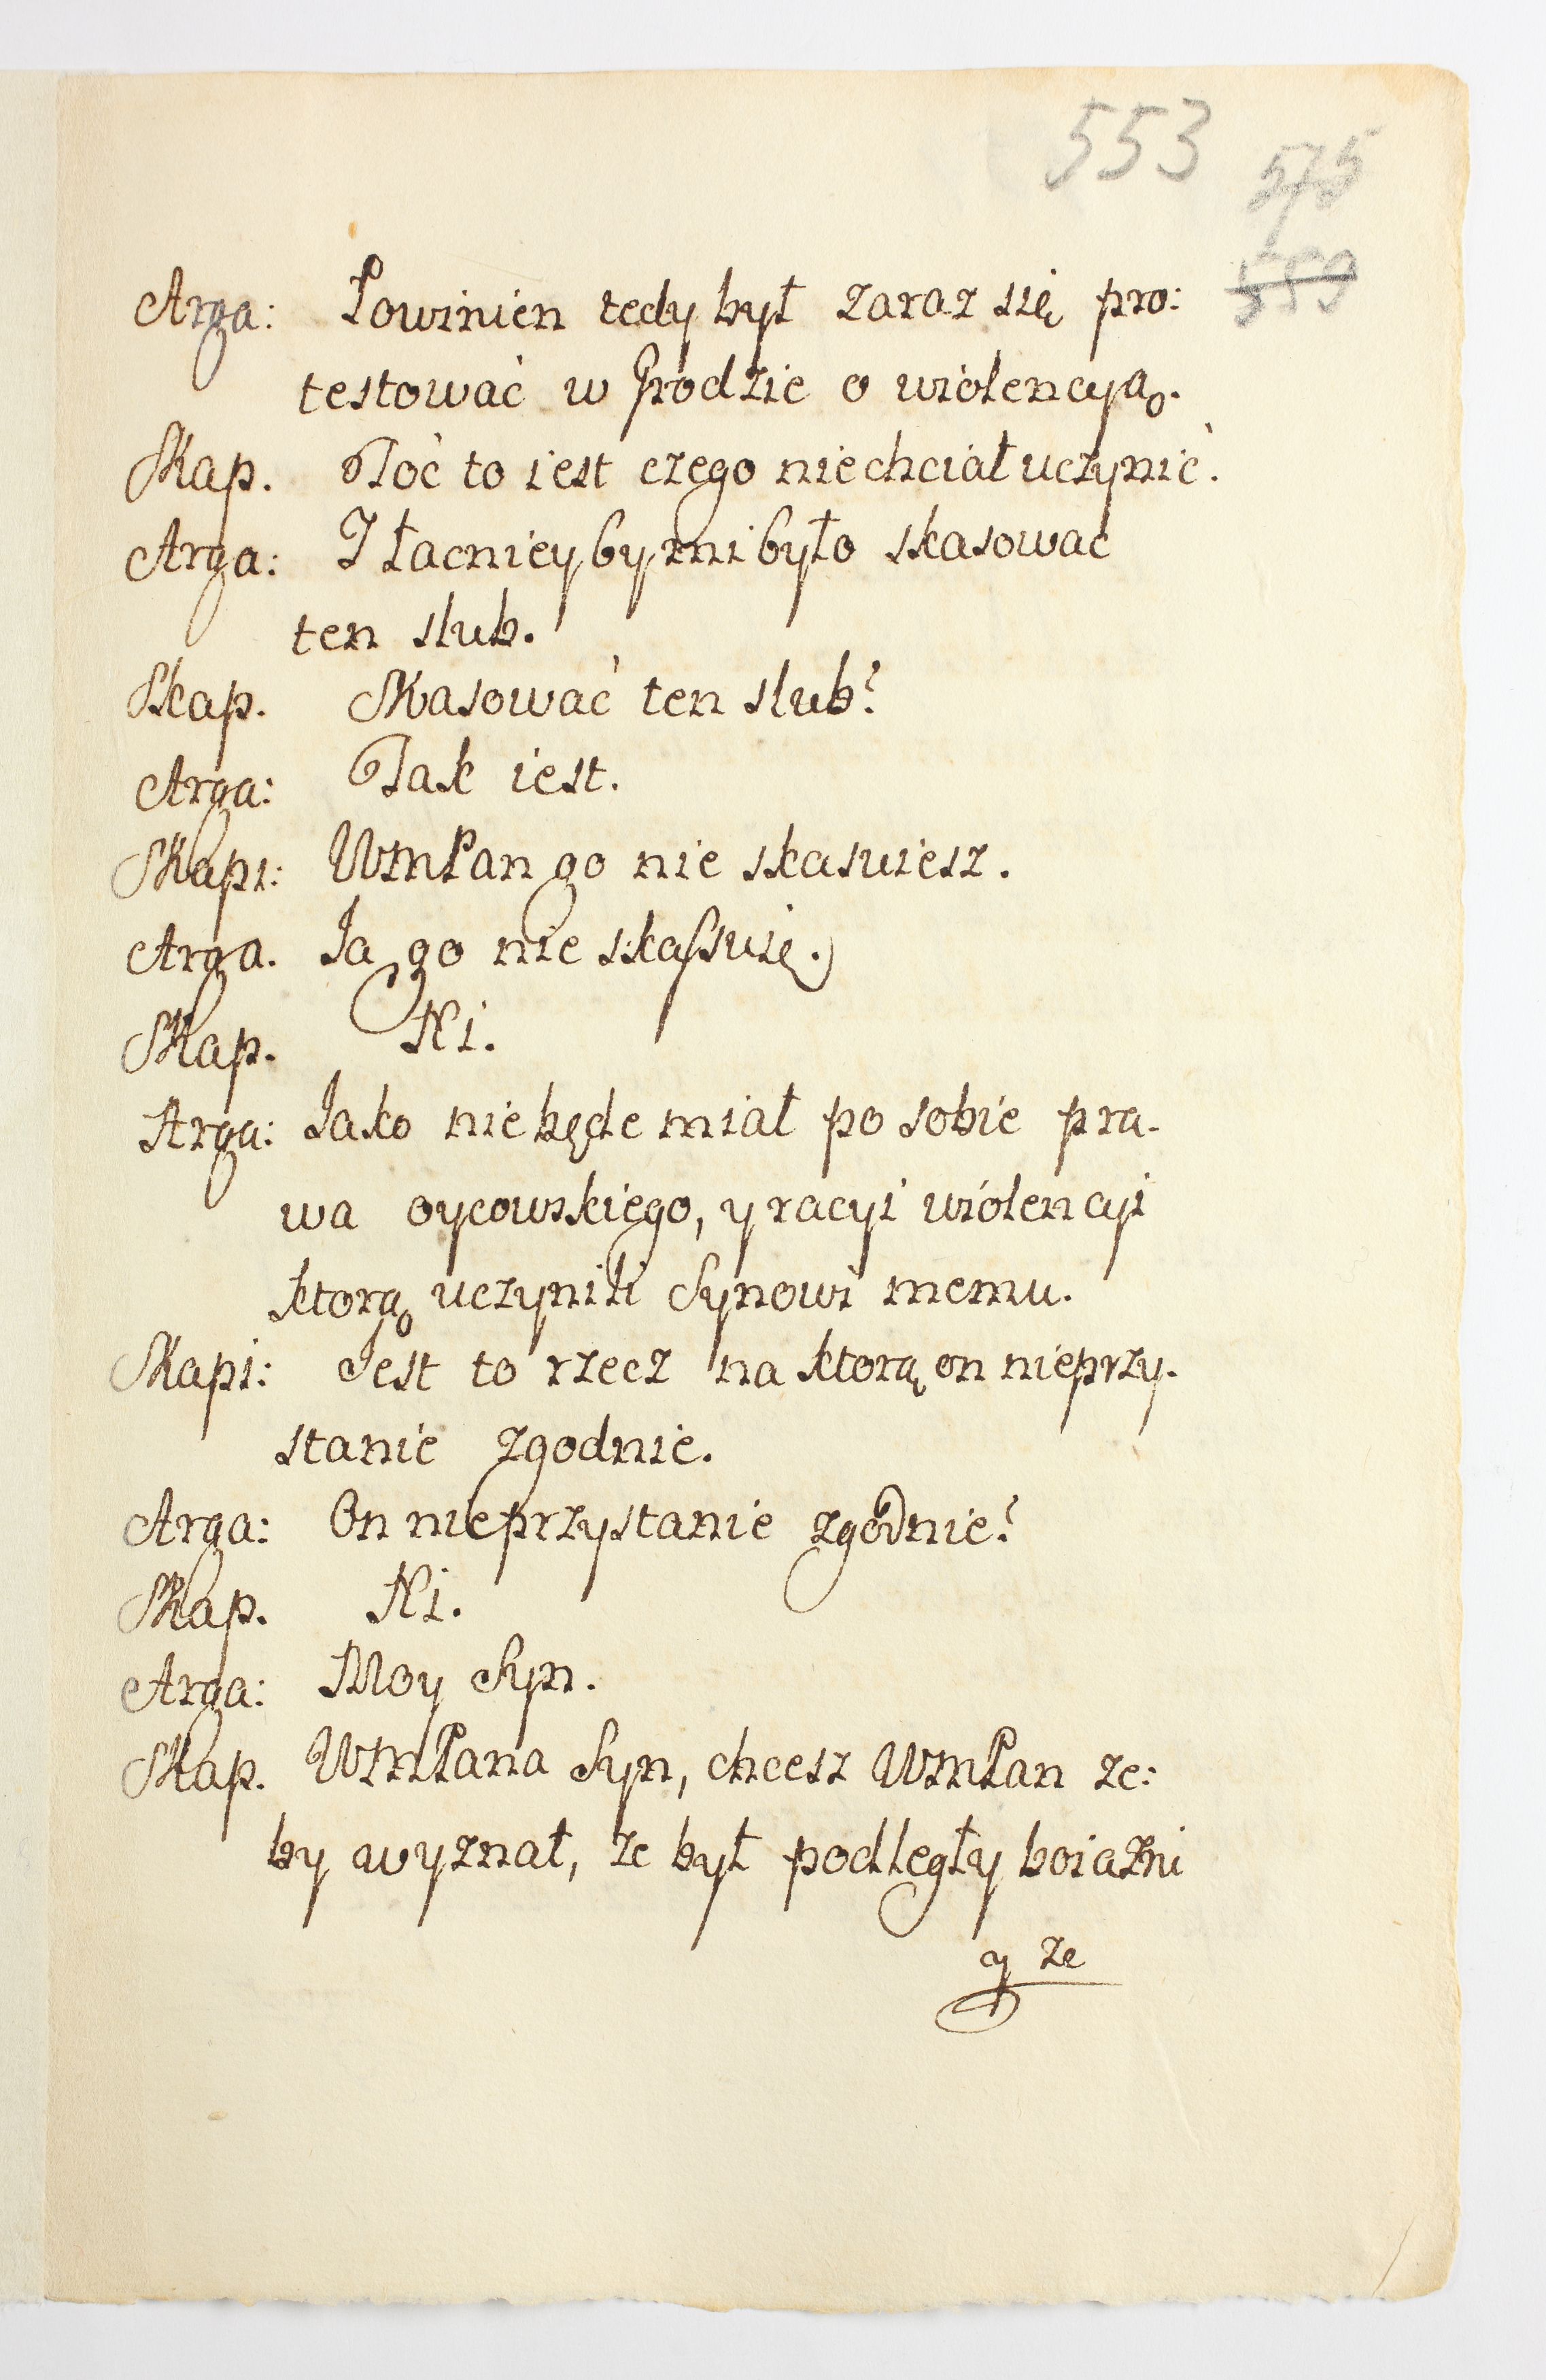 553
575
559
Arga: Powinien tedy był zaraz się pro:
testować w Grodzie o wiolencyą.
Skap. Toć to iest czego niechciał uczynić.
Arga: I łacnieyby mi było skasować
ten slub.
Skap. Skasować ten slub?
Arga: Tak iest.
Skapi: WmPan go nie skasuiesz.
Arga. Ia go nie skassuię.
Skap. Ni.
Arga: Iako niebęde miał po sobie pra-
wa oycowskiego, y racyi wiolencyi
ktorą uczynili Synowi memu.
Skapi: Iest to rzecz na ktorą on nieprzy-
stanie zgodnie.
Arga: On nieprzystanie zgodnie?
Skap. Ni.
Arga: Moy Syn.
Skap. WmPana Syn, chcesz WmPan ze:
by wyznał, ze był podległy boiazni
y ze